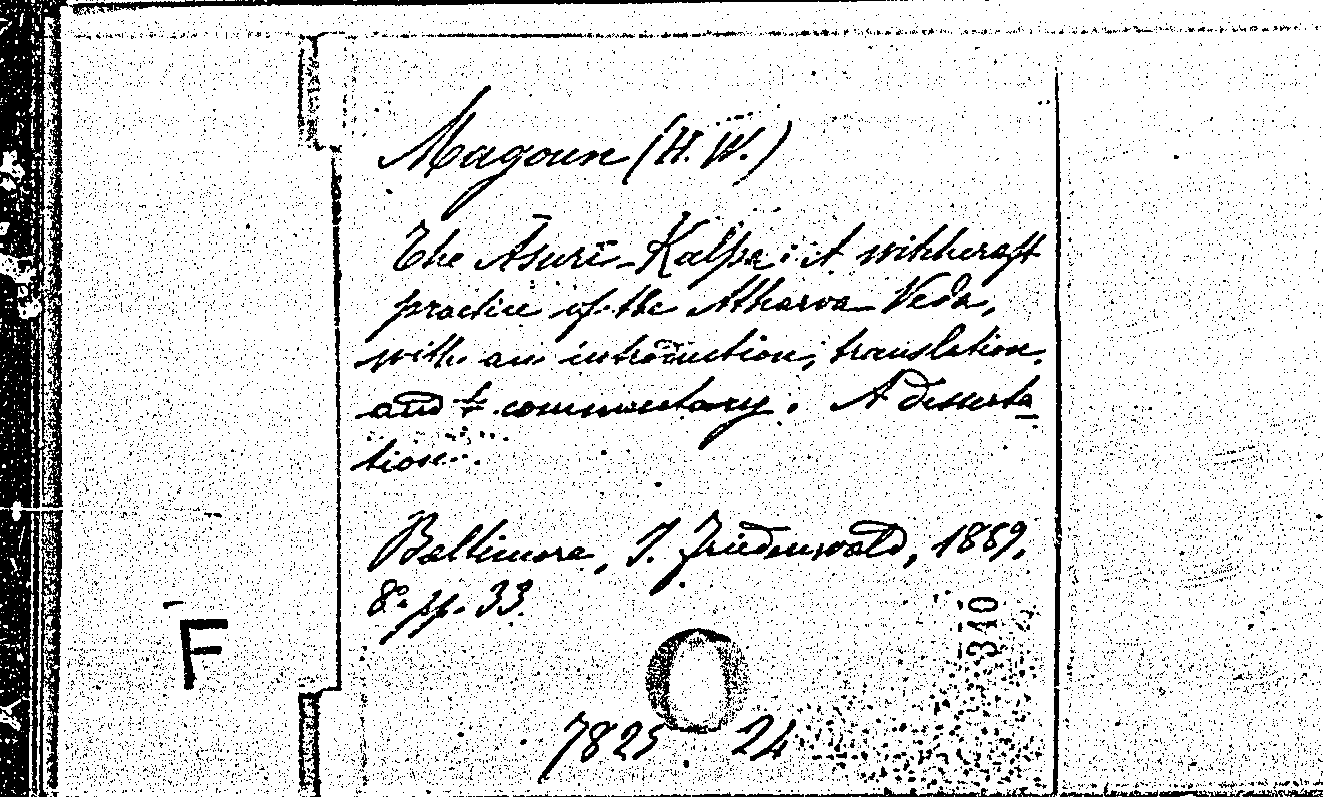 Magoun (H. W.)
The Asurī-Kalpa: A witchcraft
practice of the Atharva-Veda,
with an introduction, translation,
and commentary. A disserta-
tion.
Baltimore, I. Friedenwald, 1889,
8° pp. 33.
340
F
7825 24